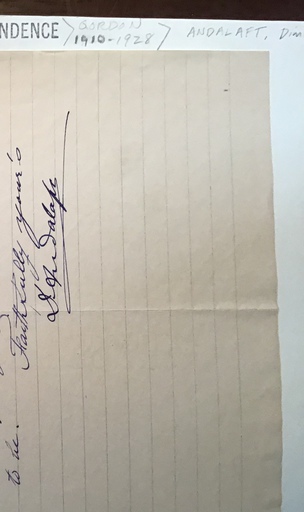 to be. Faithfully your's
D. Andalaft
NDENCE
GORDON
1910-1928
ANDALAFT, Dim